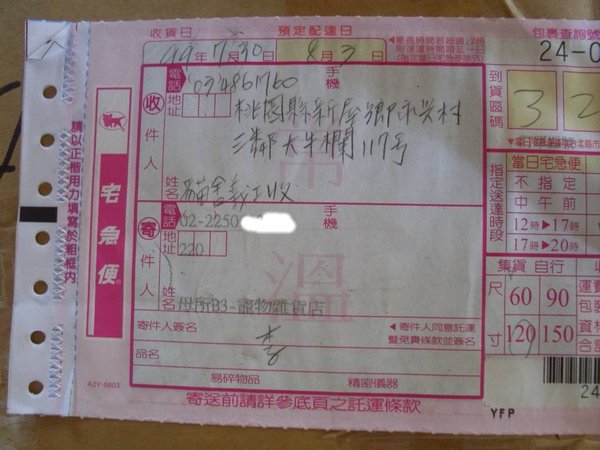 收貨日
預定配達日
包裹查詢號
99年7月30
8月3日
寄送時間若超過17時
24-0
電話
034861760
手機
到貨區碼
3 2
收件人
地址
桃園縣新屋鄉永興村
三鄰大牛欄117號
姓名
貓舍義工收
常溫
請以正楷用力填寫於粗框內
宅急便®
當日宅急便
指定送達時段
不指定
中午前
12時▶17時
17時▶20時
寄件人
電話
02-2250
手機
地址
220
姓名
母所B3-寵物雜貨店
集貨 自行
尺寸
60 90
120 150
運費
包裝
資材
合計
寄件人簽名
李
◀寄件人同意託運
暨免責條款並簽名
品名
易碎物品
精密儀器
A2Y-9803
寄送前請詳參底頁之託運條款
YFP
24